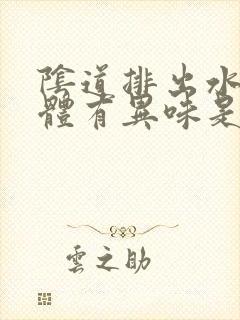 陰道排出水
體有異味是
雲之助